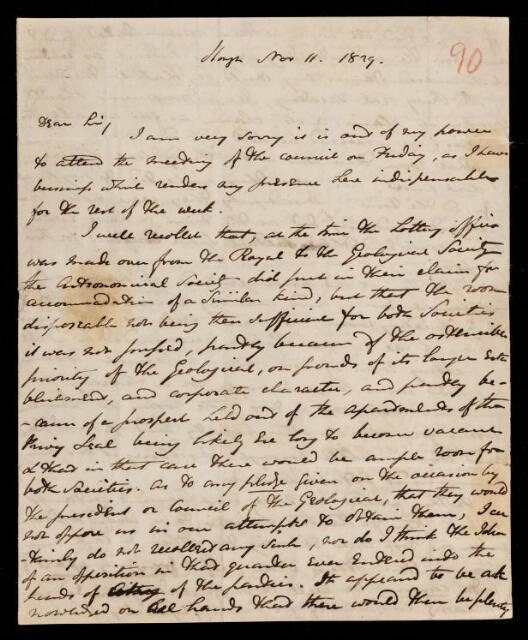 Slough Nov 11. 1829.
90
Dear Sir,
I am very sorry is is out of my power
to attend the meeting of the council on Friday, as I have
business which renders my presence here indispensable
for the rest of the week.
I well recollect that, at the time the Lottery office
was made over from the Royal to the Geological Society
the Astronomical Society did put in their claim for
accommodation of a similar kind, but that the room
disposable not being then sufficient for both Societies
it was not pressed, partly because of the ostensible
priority of the Geological, on grounds of its longer esta
blishment, and corporate character, and partly be-
-cause of a prospect held out of the apartments of the
Privy Seal being likely ere long to become vacant
& that in that case there would be ample room for
both Societies. As to any pledge given on the occasion by
the president or Council of the Geological, that they would
not oppose us in our attempts to obtain them, I cer
-tainly do not recollect any such, nor do I think the Idea
of an opposition in that quarter ever entered into the
heads of of the parties. It appeared to be ack
nowledged on all hands that there would then be plenty